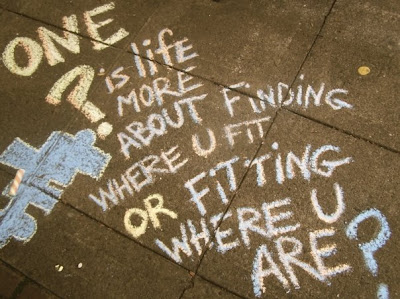 ONE
? is life
MORE
ABOUT FiNDiNG
WHERE U FIT
OR FiTTiNG
WHERE U
ARE?